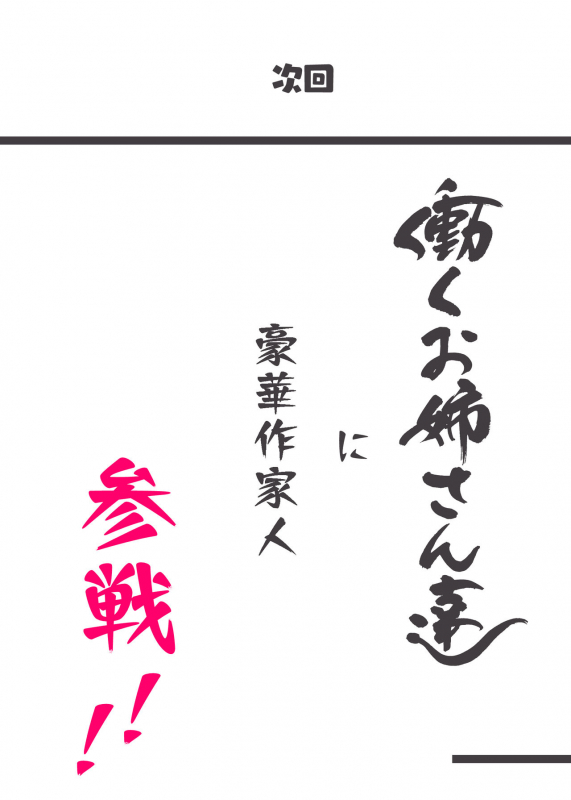 次回
働くお姉さん達
に
豪華作家人
参戦!!